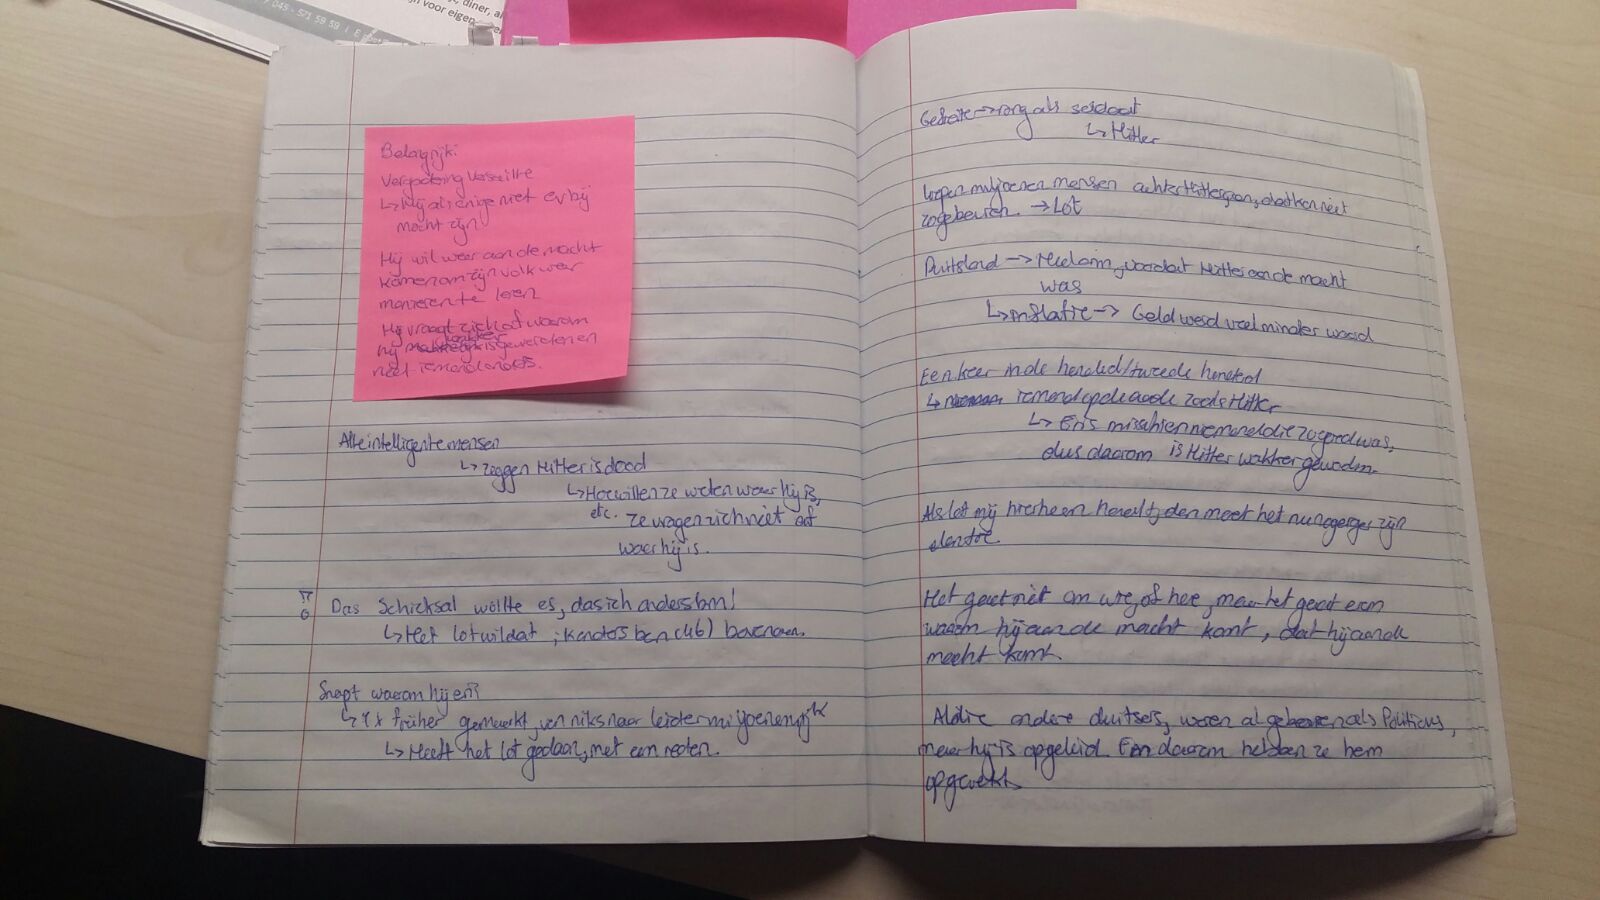 diner, al
jn voor eigen
045 - 571 59 59 | E
Belangrijk:
Verpakking Versaille
↳ Hij als enige niet erbij
macht zijn
Hij wil weer aan de macht
komen om zijn volk weer
manieren te leren
Hij vraagt zich af waarom
hij wakker is geworden en
niet iemand anders.
Alle intelligente mensen
↳ zeggen Hitler is dood
↳ Hoe willen ze weten waar hij is,
etc. ze vragen zich niet af
waar hij is.
Das Schicksal wollte es, das ich anders bin!
↳ Het lot wil dat, ik anders ben (46) bovenaan.
Snapt waarom hij er is
↳ 1x früher gemerkt, van niks naar leider miljoenenrijk
↳ Heeft het lot gedaan, met een reden.
Gefreite → rang als soldaat
↳ Hitler
Liepen miljoenen mensen achter Hitler aan, dat kon niet
zo gebeuren. → Lot
Duitsland → Heel arm, voordat Hitler aan de macht
was
↳ inflatie → Geld werd veel minder waard
Een keer in de honderd/tweede honderd
↳ iemand op de aarde zoals Hitler
↳ Er is misschien niemand die zo goed was,
dus daarom is Hitler wakker geworden.
Als lot mij hierheen haalt, dan moet het nu nog erger zijn
dan toe.
Het gaat niet om wie, of hoe, maar het gaat erom
waarom hij aan de macht komt, dat hij aan de
macht komt.
Al die andere duitsers, waren al geboren als Politicus,
maar hij is opgeleid. En daarom hebben ze hem
opgewekt.